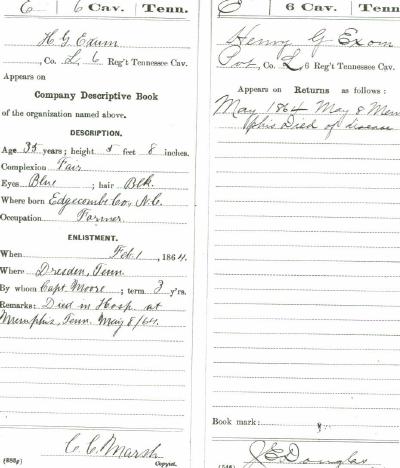 E 6 Cav. Tenn.
H G Exum
, Co. L, 6 Reg't Tennessee Cav.
Appears on
Company Descriptive Book
of the organization named above.
DESCRIPTION.
Age 35 years; height 5 feet 8 inches.
Complexion Fair
Eyes Blue ; hair Blk.
Where born Edgecombe Co, N.C.
Occupation Farmer.
ENLISTMENT.
When Feb. 1 , 1864.
Where Dresden, Tenn.
By whom Capt. Moore ; term 3 y'rs.
Remarks: Died in Hosp. at
Memphis, Tenn. May 8/64.
C. C. Marsh
Copyist.
E 6 Cav. Tenn
Henry G Exom
Pvt, Co. L 6 Reg't Tennessee Cav.
Appears on Returns as follows:
May 1864 May 8 Mem
phis Died of disease
Book mark:
J E Douglas